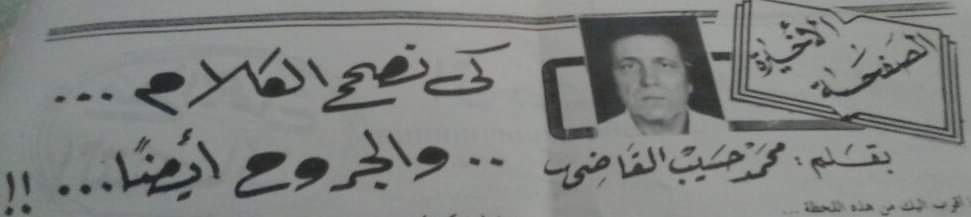 الصفحة الأخيرة
بقلم: محمد حسيب القاضي
كي نصحح الكلام ...
.. والجروح أيضًا... !!
أقرب إليك من هذه اللحظة ...